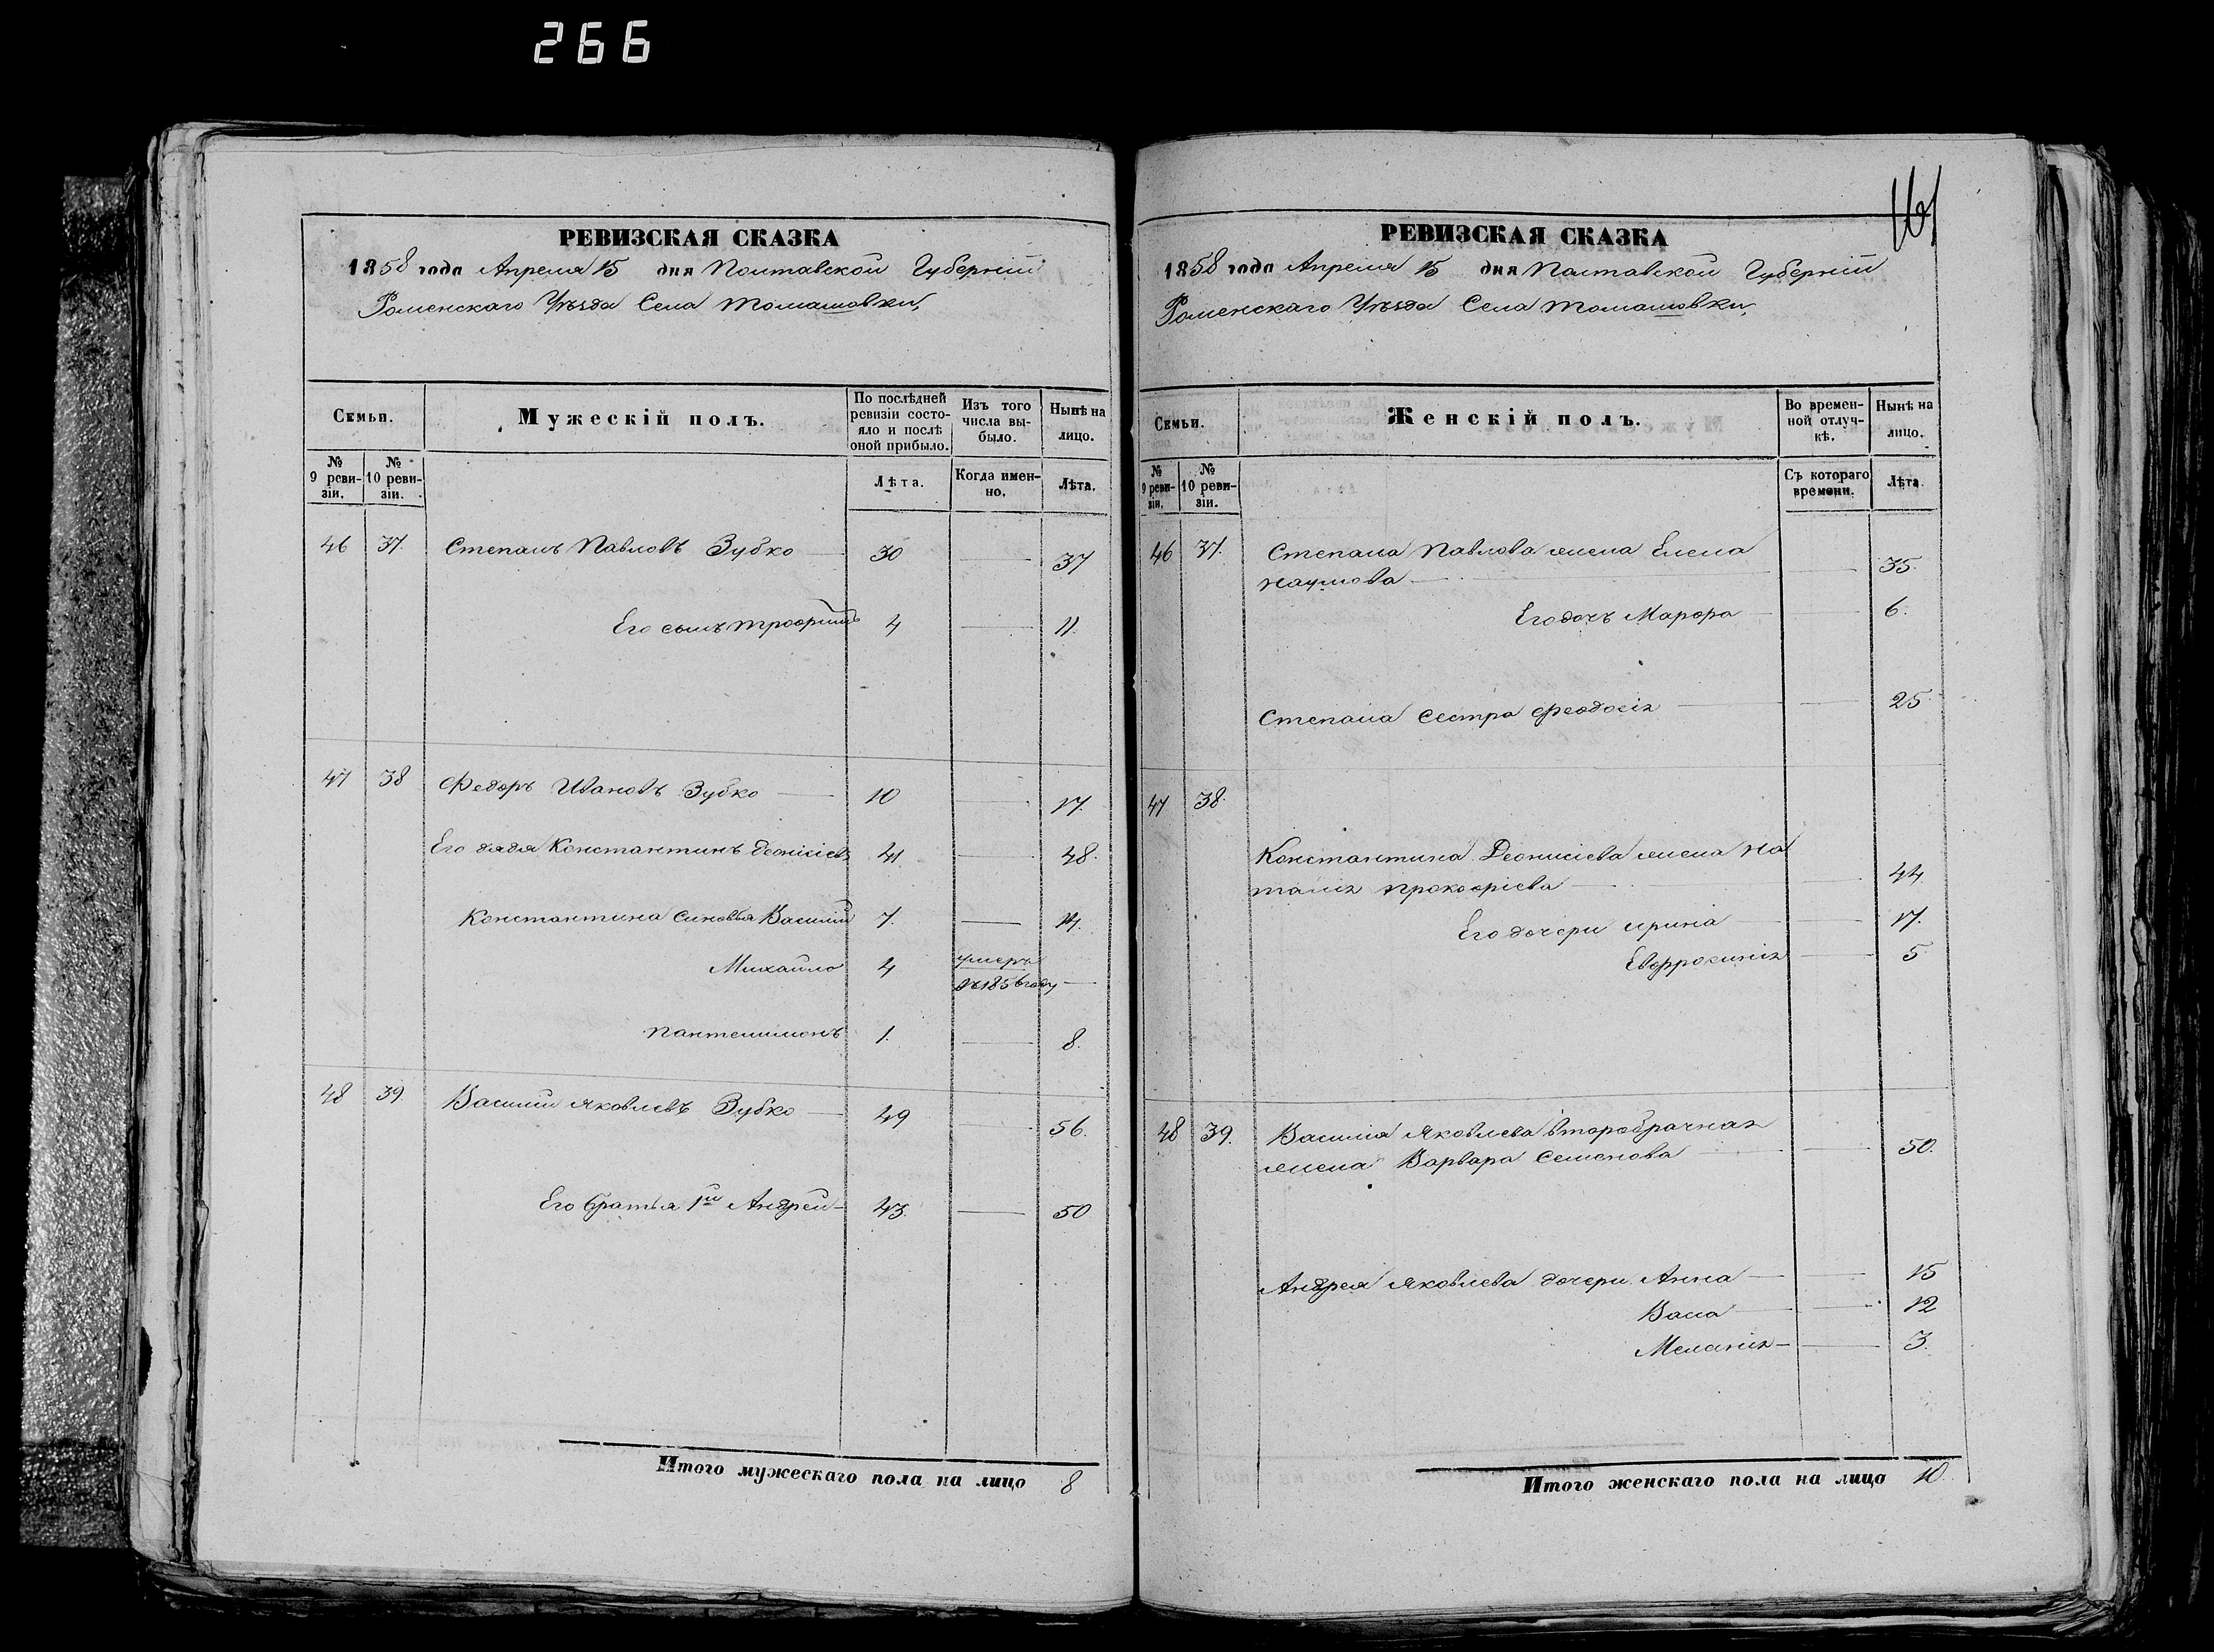 266
РЕВИЗСКАЯ СКАЗКА
1858 года Апреля 15 дня Полтавской Губерніи
Роменскаго Уѣзда Села Томашовки,
Семьи.
Мужескій полъ.
По послѣдней ревизіи состояло и послѣ оной прибыло.
Изъ того числа выбыло.
Нынѣ на лицо.
№ 9 ревизіи.
№ 10 ревизіи.
Лѣта.
Когда именно.
Лѣта.
46 37. Степанъ Павловъ Зубко 30 37
Его сынъ Трофимъ 4 11.
47 38 Федоръ Ивановъ Зубко 10 17.
Его дядя Константинъ Деонісіевъ 41 48.
Константина синовья Василій 7. 14.
Михайло 4 умеръ
въ 1856 году
Пантелимонъ 1. 8.
48 39. Василій Яковлевъ Зубко 49 56.
Его братья 1й Андрей 43. 50
Итого мужескаго пола на лицо 8
161
РЕВИЗСКАЯ СКАЗКА
1858 года Апреля 15 дня Полтавской Губерніи
Роменскаго Уѣзда Села Томашовки,
Семьи.
Женскій полъ.
Во временной отлучкѣ.
Нынѣ на лицо.
№ 9 ревизіи.
№ 10 ревизіи.
Съ котораго времени.
Лѣта
46 37. Степана Павлова жена Елена
Наумова 35.
Его дочь Марфа 6.
Степана сестра Феодосія 25
47 38.
Константина Деонисіева жена На
талія Прокофіева 44
Его дочери Ирина 17.
Евфросинія 5
48 39. Василія Яковлева второбрачная
жена Варвара Семенова 50.
Андрея Яковлева дочери Анна 15
Васа 12
Меланія 3.
Итого женскаго пола на лицо 10.